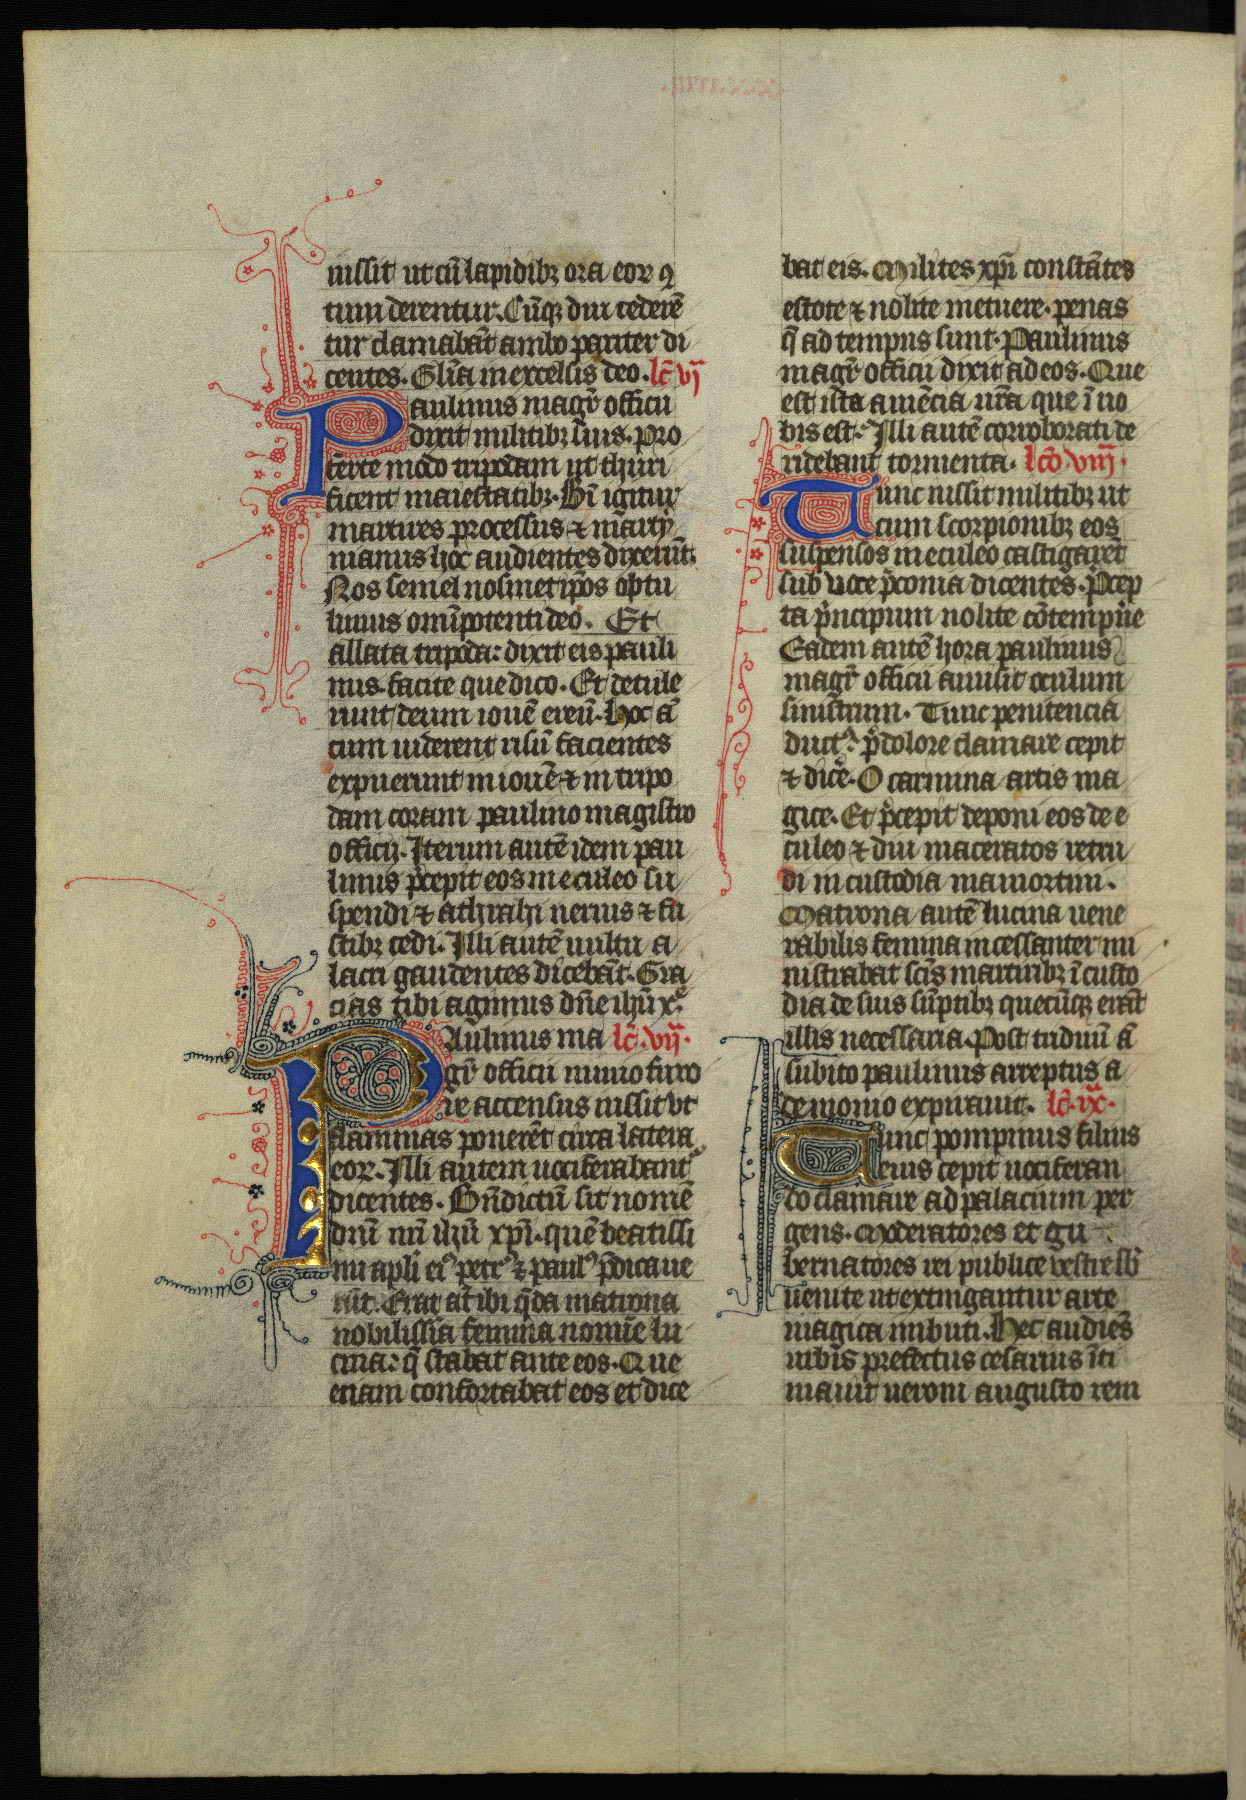 iussit ut cū lapidibꝫ ora eoꝝ ꝯ
tunderentur. Cūqꝫ diu cederē
tur clamabāt ambo pariter di
centes. Glīa in excelsis deo. lc̄ vj
Paulinus magr̄ officii
dixit militibꝫ suis. Pro
ferte modo tripodam ut thuri
ficent maiestatibꝫ. Hī igitur
martires processus ⁊ marti
nianus hoc audientes dixerūt.
Nos semel nosmetip̄os optu
limus om̄ipotenti deo. Et
allata tripoda: dixit eis pauli
nus. facite que dico. Et detule
runt deum iouē ereū. Hoc a̅
cum uiderent risū facientes
expuerunt in iouē ⁊ in tripo
dam coram paulino magistro
officij. Iterum autē idem pau
linus p̄cepit eos in eculeo su
spendi ⁊ athrahi neruis ⁊ fu
stibꝫ cedi. Illi autē uultu a
lacri gaudentes dicebāt. Gra
cias tibi agimus dn̄e ih̄u x̄e
Aulinus ma lc̄. vij.
gr̄ officii nimio furo
re accensus iussit vt
flammas ponerēt circa latera
eoꝝ. Illi autem uociferabant
dicentes. Bn̄dictū sit nomē
dn̄i nr̄i ih̄u xp̄i. quē beatissi
mi apl̄i eiꝰ petrꝰ ⁊ paulꝰ p̄dicaue
rūt. Erat at̄ ibi q̄da matrona
nobilissīa femina nomīe lu
cina: q̄ stabat ante eos. Que
etiam confortabat eos et dice
bat eis. Milites xp̄i constātes
estote ⁊ nolite metuere. penas
q̄ ad tempus sunt. Paulinus
magr̄ officii dixit ad eos. Que
est ista amēcia ur̄a que ī uo
bis est. Illi autē corroborati de
ridebant tormenta. lc̄o. viij.
Tunc iussit militibꝫ ut
cum scorpionibꝫ eos
suspensos in eculeo castigarēt
sub uoce p̄conia dicentes. P̄cep
ta p̄ncipum nolite cōtempn̄e
Eadem autē hora paulinus
magr̄ officii amisit oculum
sinistrum. Tunc penitencia
ductꝰ: p̄ dolore clamare cepit
⁊ dicē. O carmina artis ma
gice. Et p̄cepit deponi eos de e
culeo ⁊ diu maceratos retru
di in custodia mamortini.
Matrona autē lucina uene
rabilis femina incessanter mi
nistrabat scīs martiribꝫ ī custo
dia de suis sūptibꝫ quecūqꝫ erāt
illis necessaria. Post triduū a̅
subito paulinus arreptus a
demonio expirauit. lc̄. ix.
Tunc pompinius filius
eius cepit uociferan
do clamare ad palacium per
gens. Moderatores et gu
bernatores rei publice vestre sb̄
uenite ut extingantur arte
magica imbuti. Hec audiēs
urbis prefectus cesarius īti
mauit neroni augusto rem